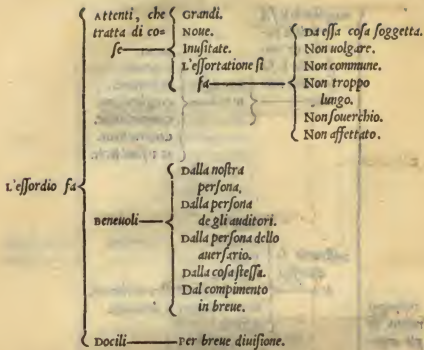 L'eſſordio fa
Attenti, che
tratta di co-
ſe
Grandi.
Noue.
Inuſitate.
L'eſſortatione ſi
fa
Da eſſa coſa ſoggetta.
Non uolgare.
Non commune.
Non troppo
lungo.
Non ſouerchio.
Non affettato.
Beneuoli
Dalla noſtra
perſona,
Dalla perſona
de gli auditori.
Dalla perſona dello
auerſario.
Dalla coſa ſteſſa.
Dal compimento
in breue.
Docili
Per breue diuiſione.